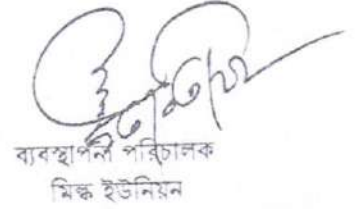 ব্যবস্থাপনা পরিচালক
মিল্ক ইউনিয়ন